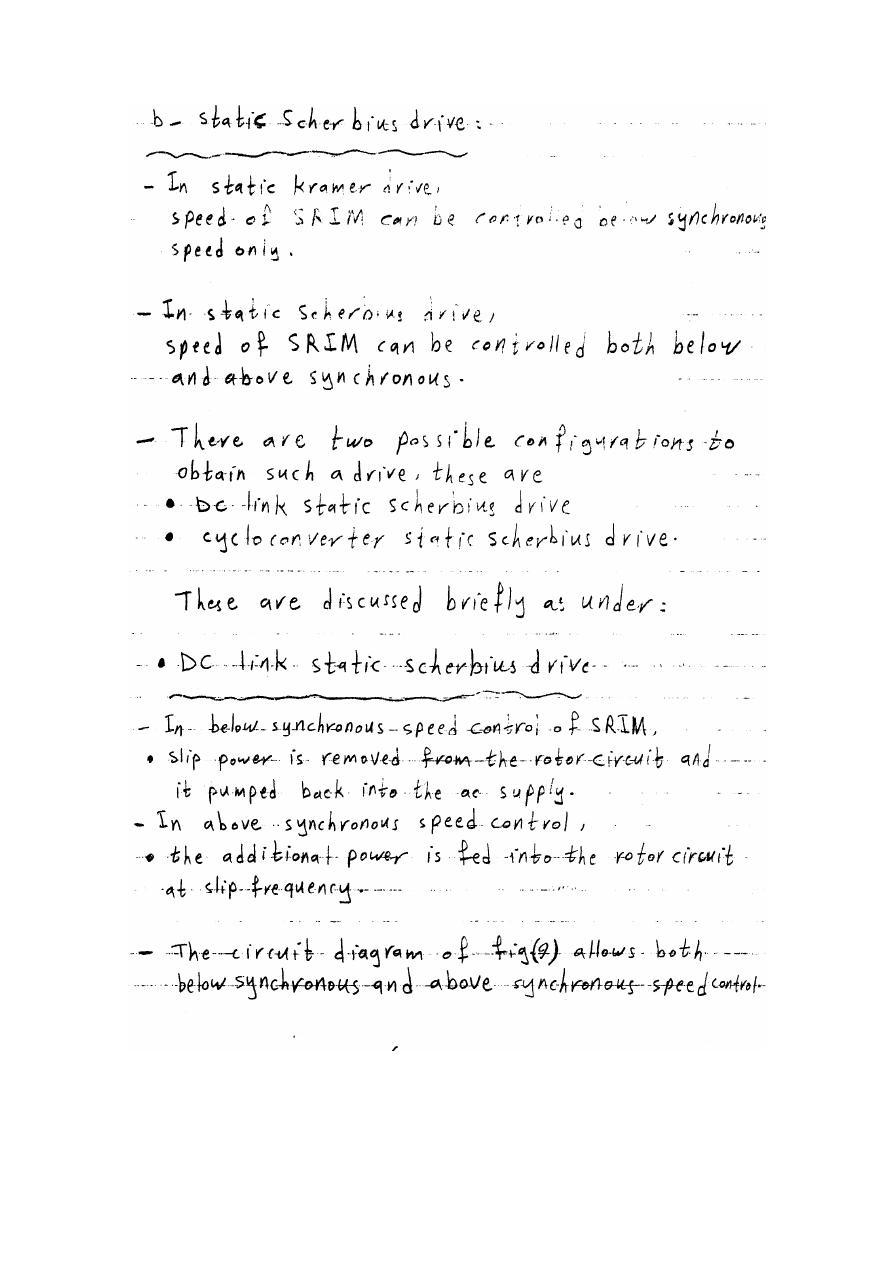 b- static Scherbius drive:
- In static kramer drive,
speed of SRIM can be controlled below synchronous
speed only.
- In static Scherbius drive,
speed of SRIM can be controlled both below
and above synchronous.
- There are two possible configurations to
obtain such a drive, these are
• DC link static scherbius drive
• cycloconverter static scherbius drive.
These are discussed briefly as under:
• DC link static scherbius drive
- In below synchronous speed control of SRIM,
• slip power is removed from the rotor circuit and
it pumped back into the ac supply.
- In above synchronous speed control,
• the additional power is fed into the rotor circuit
at slip frequency.
- The circuit diagram of fig(9) allows both
below synchronous and above synchronous speed control.